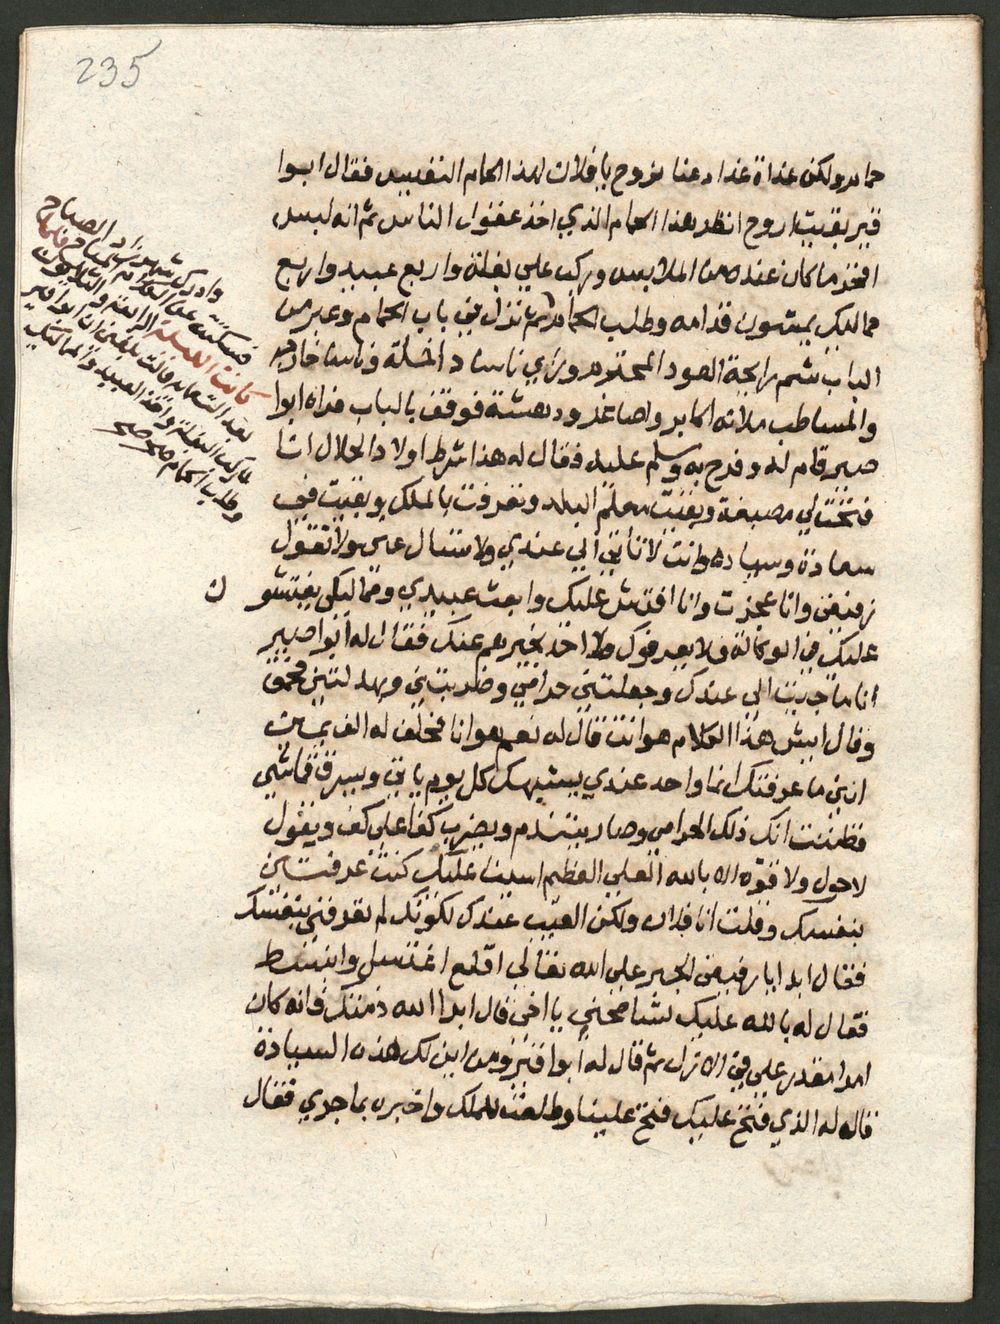 235
حمامه ولكن غداة غدا دعنا نروح يا فلان لهذا الحمام النفيس فقال ابوا
قير بقيت اروح انظر هذا الحمام الذي اخذ عقول الناس ثم انه لبس
افخر ما كان عنده من الملابس وركب علي بغلة واربع عبيد واربع
مماليك يمشون قدامه وطلب الحمام ثم نزل في باب الحمام وعبر من
الباب شم رايحة العود المحترم وراي ناسا داخلة وناسا خارجه
والمساطب ملانه اكابر واصاغر ودهشة فوقف بالباب فراه ابوا
صير قام له وفرح به وسلم عليه فقال له هذا شرط اولاد الحلال انا
فتحت لي مصبغة وبقيت معلم البلد وتعرفت بالملك وبقيت في
سعادة وسياده وانت لا تأتي الي عندي ولا تسال عني ولا تقول
رفيقي وانا عجزت وانا افتش عليك وابعث عبيدي ومماليكي يفتشو ن
عليك في الوكالة فلا يعرفوك ولا احد يخبرهم عنك فقال له ابوا صير
انا ما جيت الي عندك وجعلتني حرامي وضربتني وبهدلتني فحمق
وقال ايش هذا الكلام هو انت قال له نعم هو انا فحلف له الف يمين
انني ما عرفتك انما واحد عندي يشبهك كل يوم ياتي ويسرق قماشي
فظننت انك ذلك الحرامي وصار يتندم ويضرب كفا علي كف ويقول
لا حول ولا قوة الا بالله العلي العظيم اسينا عليك كنت عرفتني
بنفسك وقلت انا فلان ولكن العيب عندك لكونك لم تعرفني بنفسك
فقال ابدا يا رفيقي الجبر علي الله تعالي اقلع اغتسل وانبسط
فقال له بالله عليك تسامحني يا اخي قال ابرا الله ذمتك فانه كان
امرا مقدر علي في الازل ثم قال له ابوا قير ومن اين لك هذه السيادة
قال له الذي فتح عليك فتح علينا وطلعت للملك واخبره بما جري فقال
وادرك شهرزاد الصباح
فسكتت عن الكلام المباح فلما
كانت الليلة الرابعة والثلاثون
بعد التسعمايه قالت بلغني ان ابوا قير
لما ركب البغلة واخذ العبيد والمماليك
وطلب الحمام صح صح